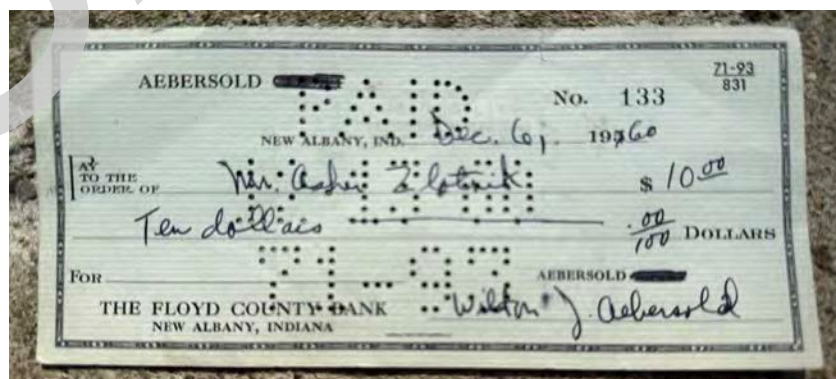 71-93
831
AEBERSOLD
No. 133
NEW ALBANY, IND. Dec. 6, 1960
PAY
TO THE
ORDER OF Mr. Asher Zlotnik $ 10.00
Ten dollars 00/100 DOLLARS
FOR
AEBERSOLD
THE FLOYD COUNTY BANK
NEW ALBANY, INDIANA
Wilton J. Aebersold
PAID
71-93